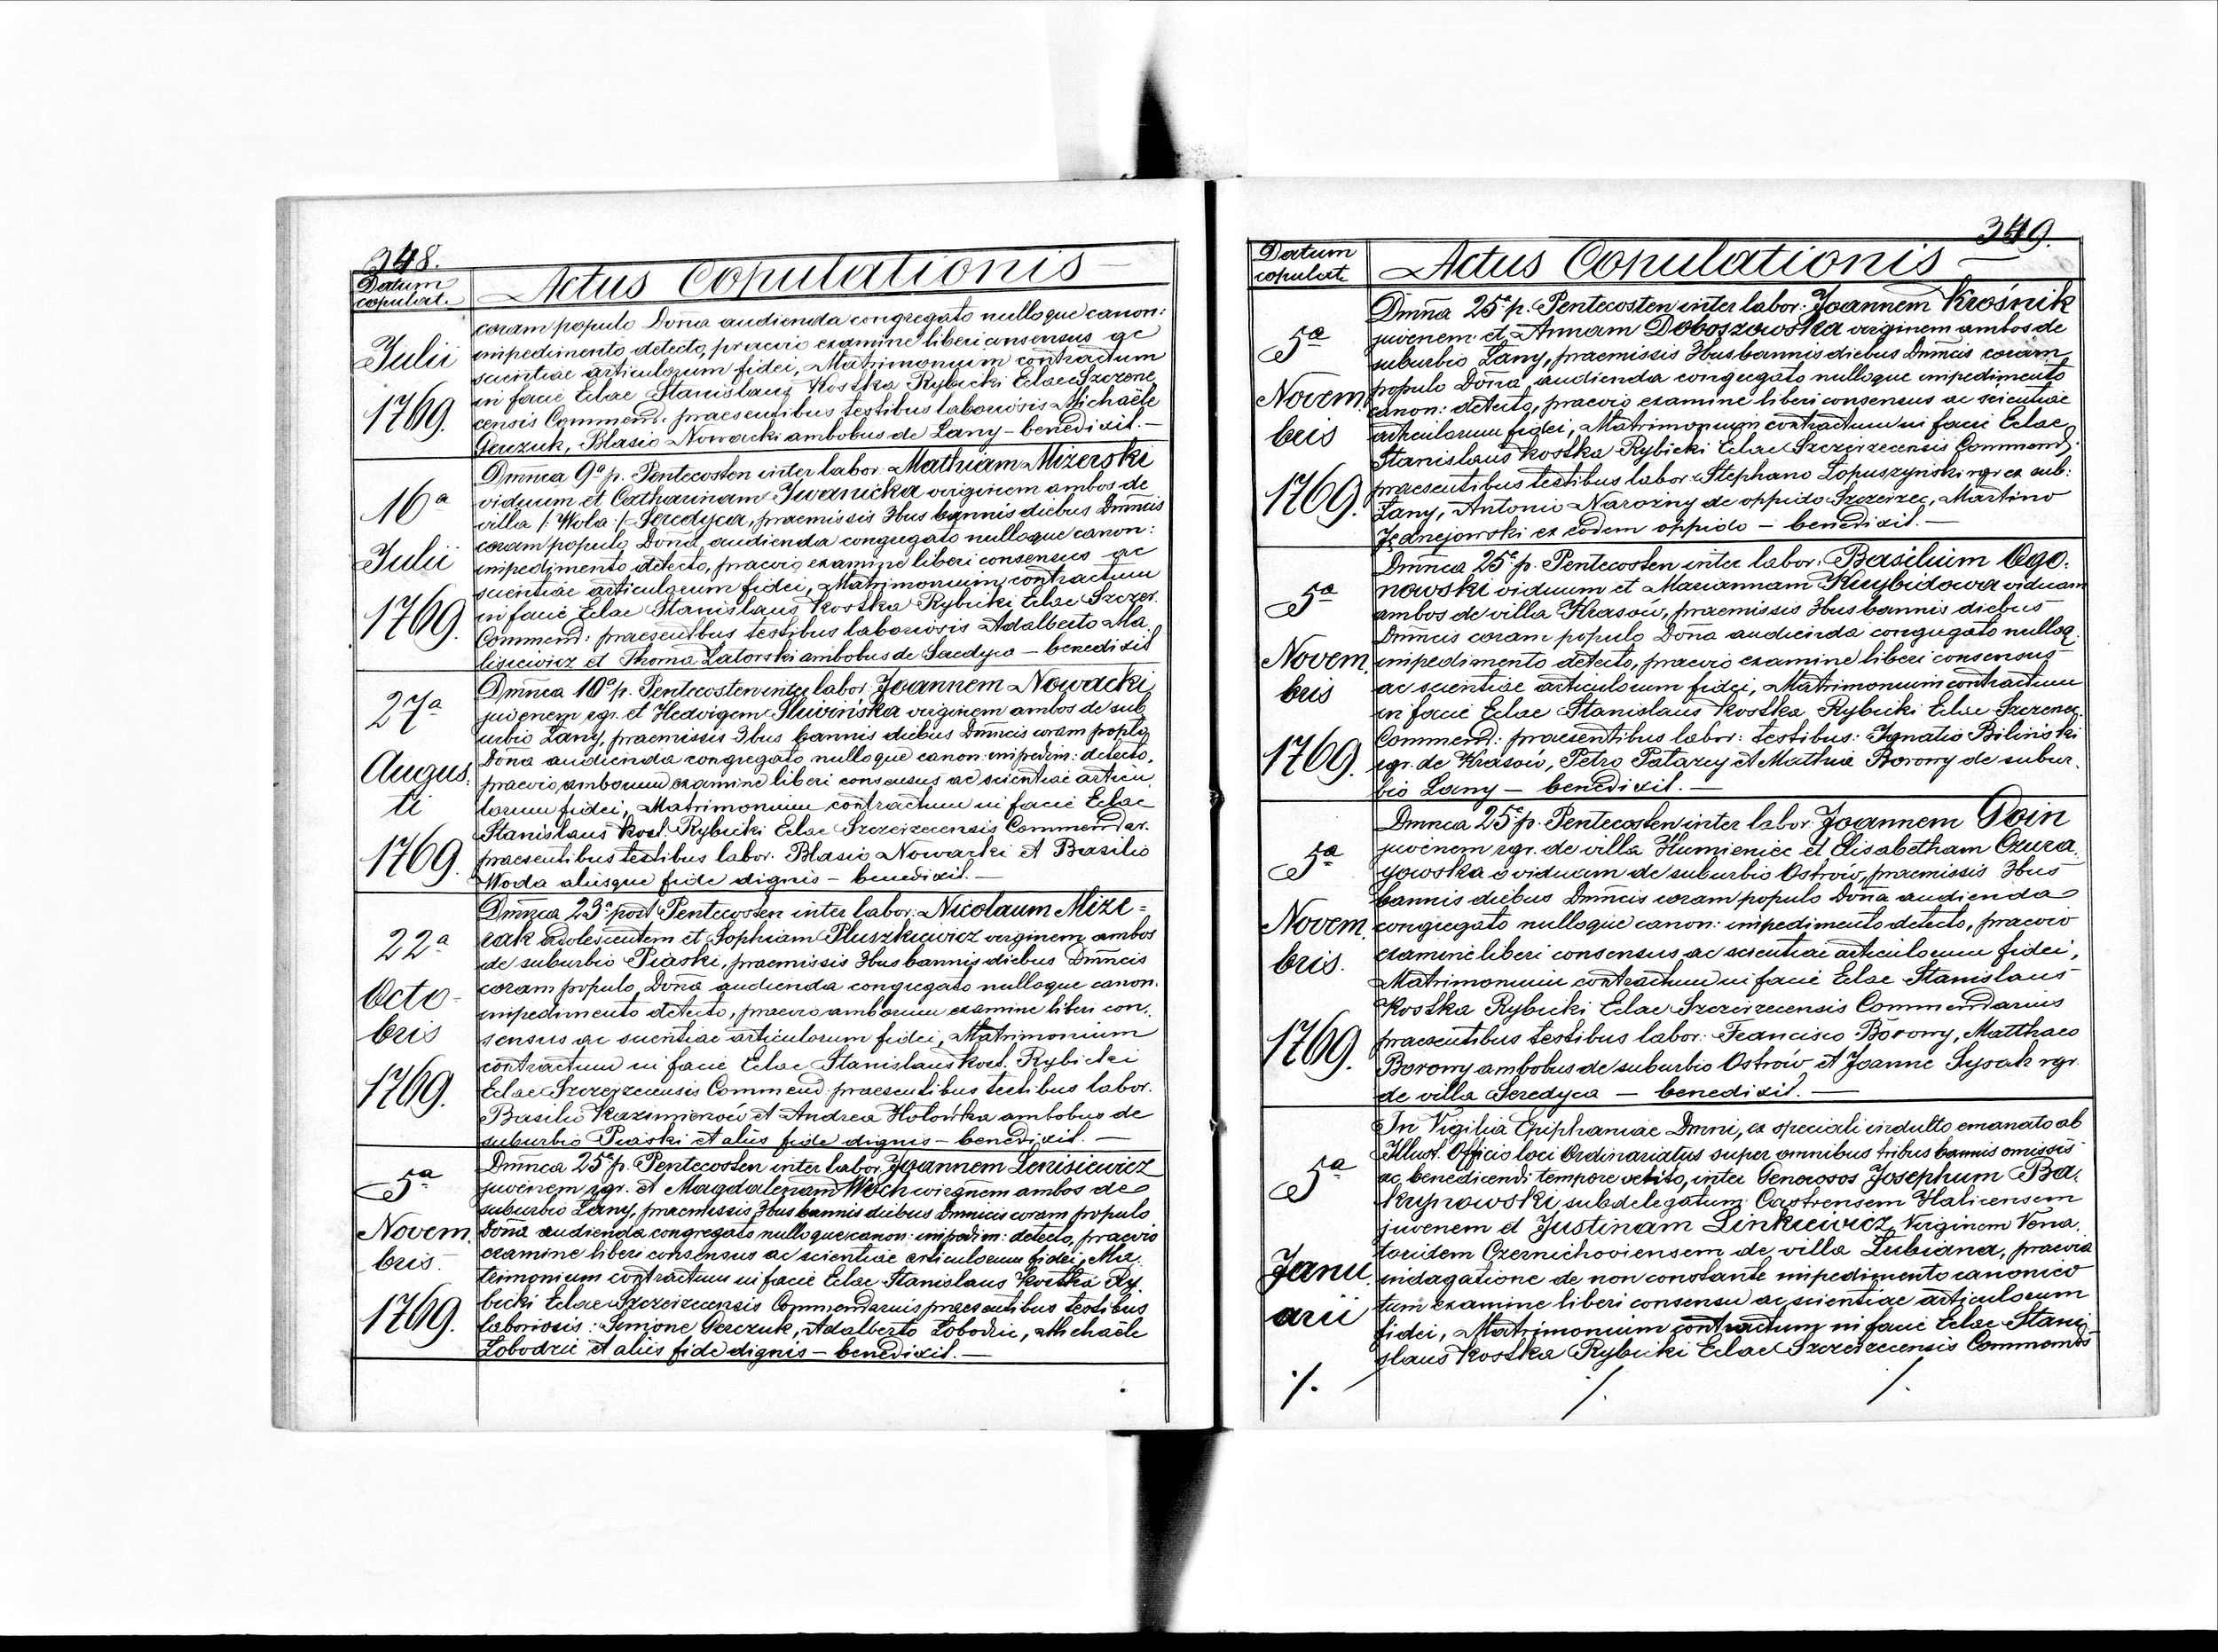 348.
Datum
copulat.
Actus Copulationis
Julii
1769.
coram populo Dona audienda congregato nulloque canon:
impedimento detecto, praevio examine liberi consensus ac
scientiae articulorum fidei, Matrimonium contractum
in facie Eclae Stanislaus Kostka Rybicki Eclae Szczerze
censis Commend: praesentibus testibus laboriosis Michaele
Blasio Nowacki ambobus de Lany – benedixit. –
16a
Julii
1769.
Dmnca 9a p. Pentecosten inter labor: Mathiam Mizerski
viduum et Catharinam Iwanicka virginem ambos de
villa /: Wola :/ Seredyca, praemissis 3bus bannis diebus Dmncis
coram populo Dona audienda congregato nulloque canon:
impedimento detecto, praevio examine liberi consensus ac
scientiae articulorum fidei, Matrimonium contractum
in facie Eclae Stanislaus Kostka Rybicki Eclae Szczer.
Commend: praesentibus testibus laboriosis Adalberto Ma
lisiewicz et Thoma Zatorski ambobus de Seredyca – benedixit
27a
Augus:
ti
1769.
Dmnca 10a p. Pentecosten inter labor: Joannem Nowacki,
juvenem rgr. et Hedvigem Sliwińska virginem ambos de sub
urbio Lany, praemissis 3bus bannis diebus Dmncis coram poplo
Dona audienda congregato nulloque canon: impedim: detecto,
praevio amborum examine liberi consensus ac scientiae articu
lorum fidei, Matrimonium contractum in facie Eclae
Stanislaus Kost. Rybicki Eclae Szczerzecensis Commendar.
praesentibus testibus labor. Blasio Nowacki et Basilio
Woda aliisque fide dignis – benedixit. –
22a
Octo-
bris
1769.
Dmnca 23a post Pentecosten inter labor: Nicolaum Mize=
rak adolescentem et Sophiam Pluszkiewicz virginem ambos
de suburbio Piaski, praemissis 3bus bannis diebus Dmncis
coram populo Dona audienda congregato nulloque canon.
impedimento detecto, praevio amborum examine liberi con.
sensus ac scientiae articulorum fidei, Matrimonium
contractum in facie Eclae Stanislaus Kost. Rybicki
Eclae Szczerzecensis Commend: praesentibus testibus labor.
Basilio Kazimierzów et Andrea Hołowka ambobus de
suburbio Piaski et aliis fide dignis – benedixit. –
5a
Novem.
bris.
1769.
Dmnca 25a p. Pentecosten inter labor: Joannem Lenisiewicz
juvenem rgr. et Magdalenam Woch virginem ambos de
suburbio Lany, praemissis 3bus bannis diebus Dmncis coram populo
Dona audienda congregato nulloque canon: impedim: detecto, praevio
examine liberi consensus ac scientiae articulorum fidei, Ma.
trimonium contractum in facie Eclae Stanislaus Kostka Ry.
bicki Eclae Szczerzecensis Commendarius praesentibus testibus
laboriosis: Simone Gerczuk, Adalberto Łobodzic, Michaele
Łobodzic et aliis fide dignis – benedixit. –
349.
Datum
copulat.
Actus Copulationis –
5a
Novem.
bris
1769.
Dmna 25a p. Pentecosten inter labor: Joannem Krośnik
juvenem et Annam Doboszowska virginem ambos de
suburbio Lany, praemissis 3bus bannis diebus Dmncis coram
populo Dona audienda congregato nulloque impedimento
canon: detecto, praevio examine liberi consensus ac scientiae
articulorum fidei, Matrimonium contractum in facie Eclae
Stanislaus Kostka Rybicki Eclae Szczerzecensis Commend.
praesentibus testibus labor: Stephano Łopuszynski rgr ex sub:
Lany, Antonio Narożny de oppido Szczerzec, Martino
Jędrzejowski ex eodem oppido – benedixit. –
5a
Novem.
bris
1769.
Dmnca 25a p. Pentecosten inter labor: Basilium Ogo:
nowski viduum et Mariannam viduam
ambos de villa Krasow, praemissis 3bus bannis diebus
Dmncis coram populo Dona audienda congregato nulloq.
impedimento detecto, praevio examine liberi consensus
ac scientiae articulorum fidei, Matrimonium contractum
in facie Eclae Stanislaus Kostka Rybicki Eclae Szczerzec.
Commend: praesentibus labor: testibus: Ignatio Bilinski
rgr. de Krasów, Petro Patarcy et Mathia Borowy de subur.
bio Lany – benedixit. –
5a
Novem.
bris.
1769.
Dmnca 25a p. Pentecosten inter labor: Joannem Goin
juvenem rgr. de villa Humieniec et Elisabetham Czura.
jowska viduam de suburbio Ostrów, praemissis 3bus
bannis diebus Dmncis coram populo Dona audienda
congregato nulloque canon: impedimento detecto, praevio
examine liberi consensus ac scientiae articulorum fidei,
Matrimonium contractum in facie Eclae Stanislaus
Kostka Rybicki Eclae Szczerzecensis Commendarius
praesentibus testibus labor: Francisco Borowy, Matthaeo
Borowy ambobus de suburbio Ostrów et Joanne Sysak rgr.
de villa Seredyca – benedixit. –
5a
Janu.
arii
In Vigilia Epiphaniae Dmni, ex speciali indulto emanato ab
Illust. Officio loci Ordinariatus super omnibus tribus bannis omissis
ac benedicendi tempore vetito, inter Generosos Josephum Ba.
krynowski, subdelegatum Castrensem Halicensem
juvenem et Justinam Linkiewicz, Virginem Vena.
toridem Czernichoviensem de villa Lubiana, praevia
indagatione de non constante impedimento canonico
tum examine liberi consensu ac scientiae articulorum
fidei, Matrimonium contractum in facie Eclae Stani
slaus Kostka Rybicki Eclae Szczerzecensis Commends
·/. /. /.